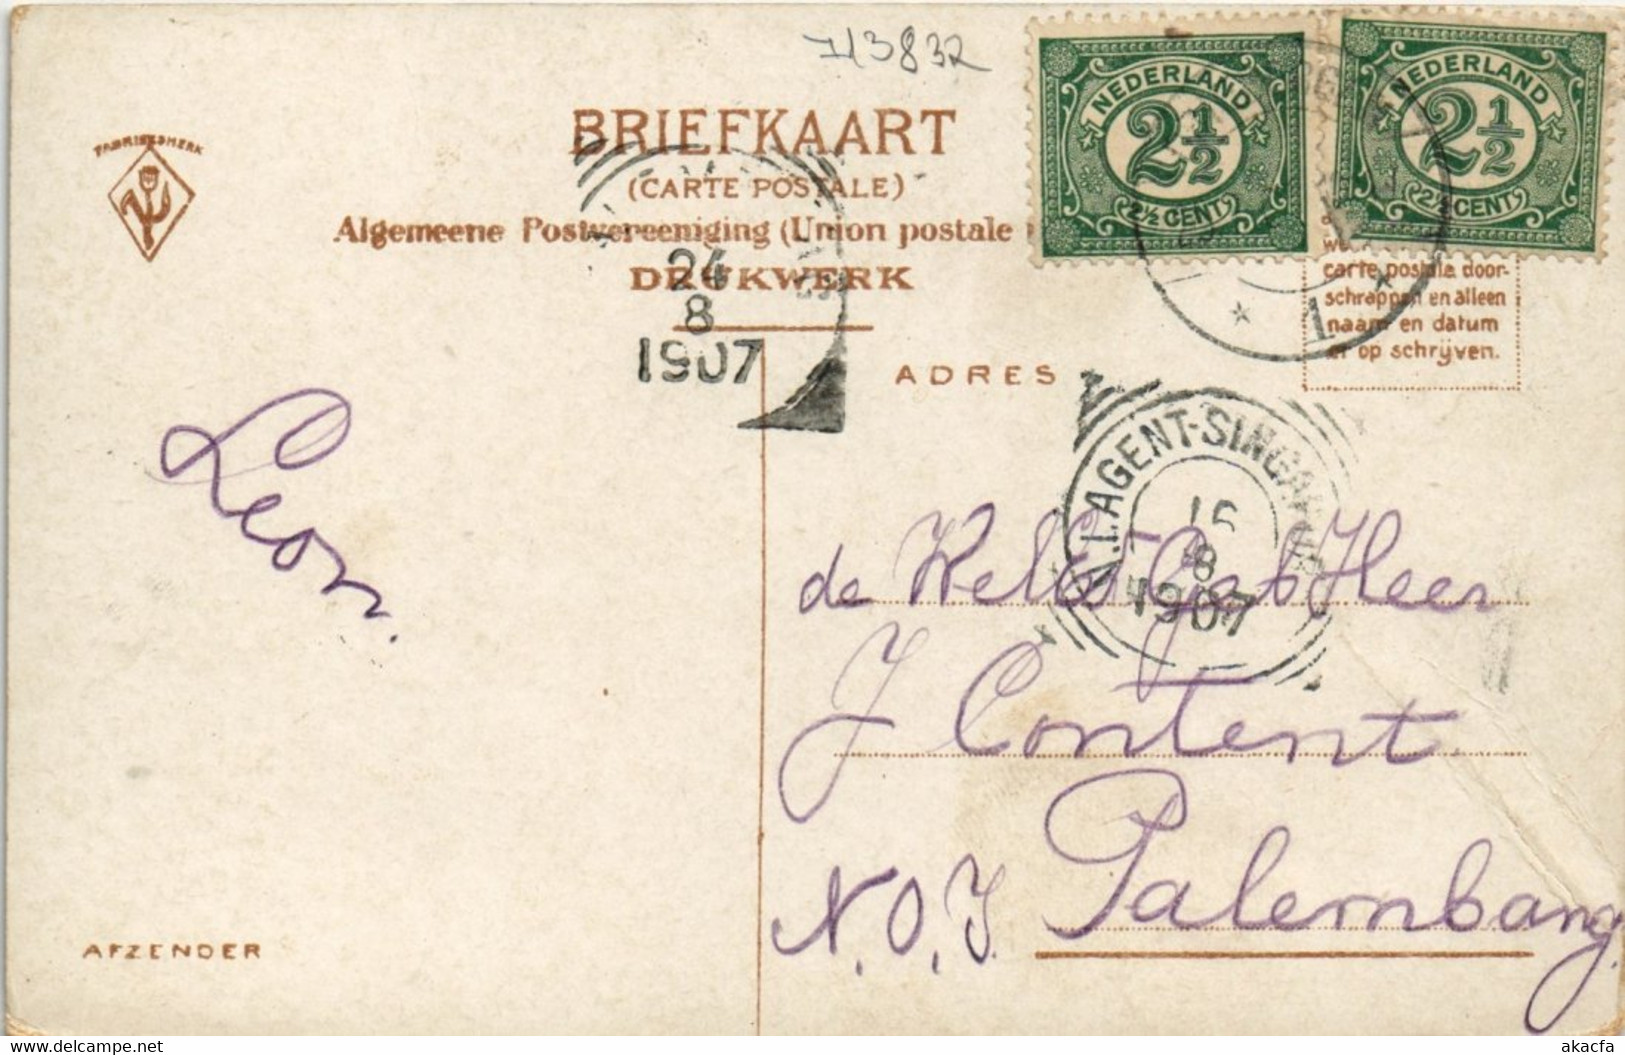 7/3832
FABRIEKSMERK
BRIEFKAART
(CARTE POSTALE)
Algemeene Postvereeniging (Union postale
DRUKWERK
NEDERLAND
2½
2½ CENT
NEDERLAND
2½
2½ CENT
24
8
1907
carte postale door-
schrappen en alleen
naam en datum
er op schrijven.
1
ADRES
N.I. AGENT-SINGAPORE
16
8
1907
Leon.
de WelEd. Geb Heer
J Content
Palembang
N.O.I.
AFZENDER
akacfa